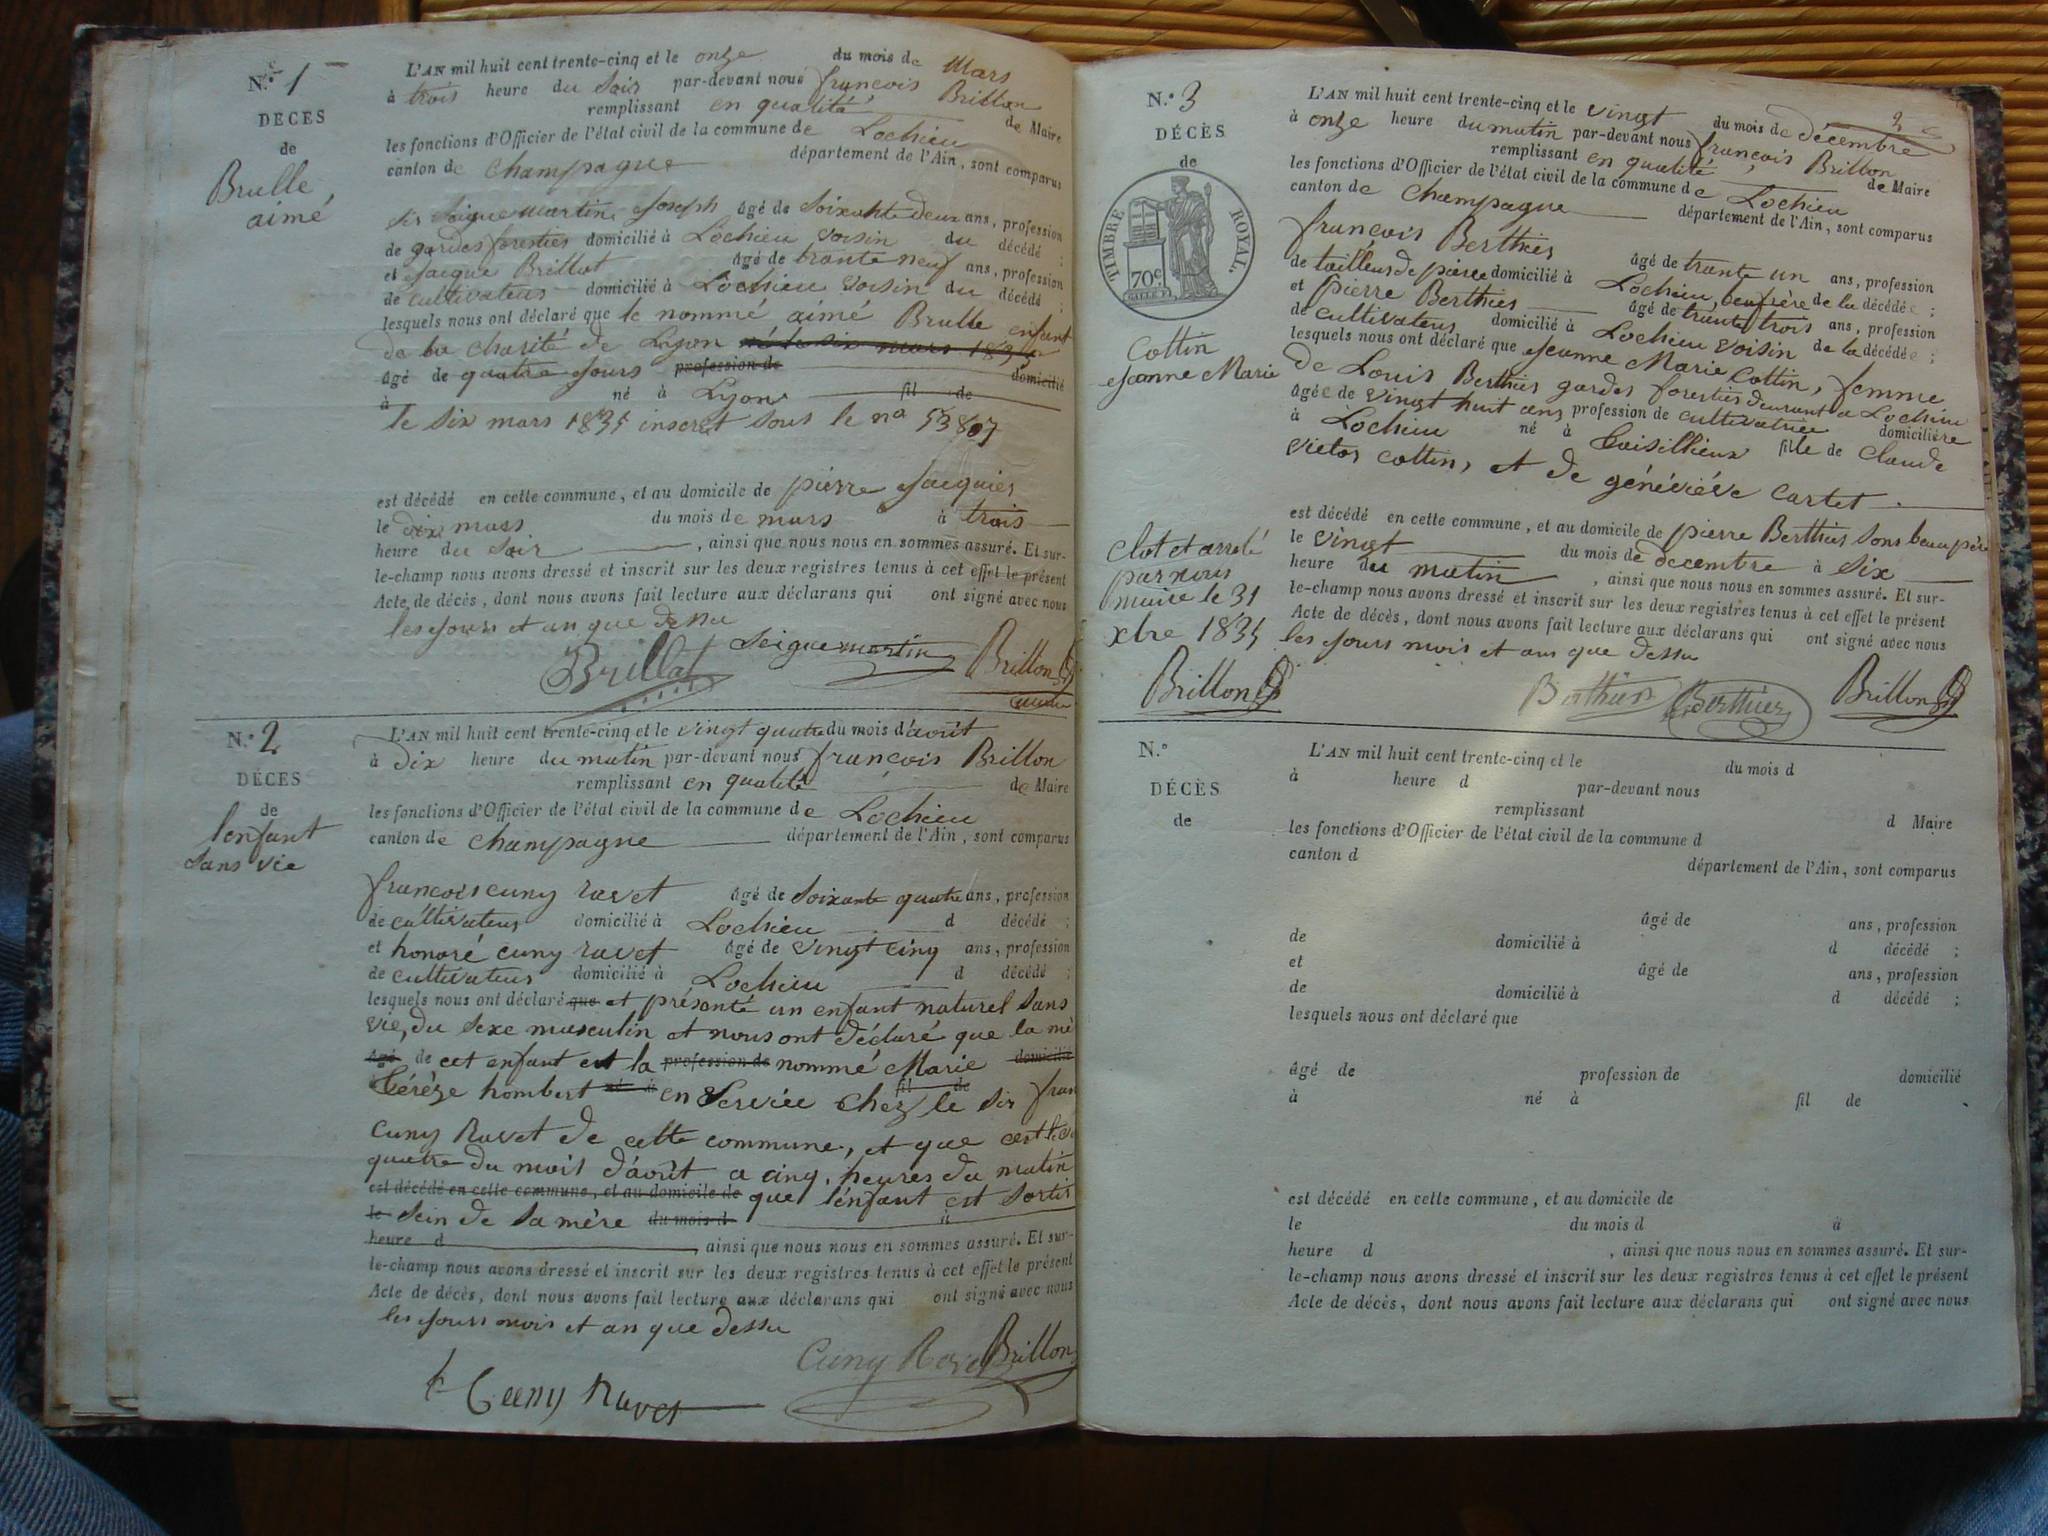 N.º 1
DÉCÈS
de
Brulle
aimé
L'AN mil huit cent trente-cinq et le onze du mois de Mars
à trois heure du soir par-devant nous françois Brillon
remplissant en qualité de Maire
les fonctions d'Officier de l'état civil de la commune de Lochieu
canton de Champagne département de l'Ain, sont comparus
sir Seigne martin Joseph âgé de soixante deux ans, profession
de gardes forestier domicilié à Lochieu voisin du décédé ;
et Jacque Brillat âgé de trante neuf ans, profession
de cultivateur domicilié à Lochieu voisin du décédé ;
lesquels nous ont déclaré que le nommé aimé Brulle enfant
de la charité de Lyon né le six mars 1835
âgé de quatre jours profession de domicilié
à né à Lyon fil de
le six mars 1835 inscret sous le no 53807
est décédé en cette commune, et au domicile de pierre Jacquier
le dix mars du mois de mars à trois
heure du soir , ainsi que nous nous en sommes assuré. Et sur-
le-champ nous avons dressé et inscrit sur les deux registres tenus à cet effet le présent
Acte de décès, dont nous avons fait lecture aux déclarans qui ont signé avec nous
les jours et an que dessu
Brillat Seigne martin Brillon
N.º 2
DÉCES
de
lenfant
sans vie
L'AN mil huit cent trente-cinq et le vingt quatre du mois d'août
à dix heure du matin par-devant nous françois Brillon
remplissant en qualité de Maire
les fonctions d'Officier de l'état civil de la commune de Lochieu
canton de Champagne département de l'Ain, sont comparus
françois cuny ravet âgé de soixante quatre ans, profession
de cultivateur domicilié à Lochieu d décédé ;
et honoré cuny ravet âgé de vingt cinq ans, profession
de cultivateur domicilié à Lochieu d décédé ;
lesquels nous ont déclaré que et présenté un enfant naturel sans
vie, du sexe masculin et nous ont déclaré que la mè
âgé de cet enfant est la profession de nommé Marie domicilié
Térèze hombert né à en service chez fil de le sir fran
Cuny Ravet de cette commune, et que cest le
quatre du mois d'août a cinq heures du matin
est décédé en cette commune, et au domicile de que l'enfant est sortis
le sein de sa mère du mois d à
heure d , ainsi que nous nous en sommes assuré. Et sur-
le-champ nous avons dressé et inscrit sur les deux registres tenus à cet effet le présent
Acte de décès, dont nous avons fait lecture aux déclarans qui ont signé avec nous
les jours mois et an que dessu
Cuny Ravet Brillon
Cuny Ravet
N.º 3
DÉCÈS
de
TIMBRE ROYAL.
70c.
Cottin
Jeanne Marie
clot et arrelé
par nous
maire le 31
xbre 1835
Brillon
L'AN mil huit cent trente-cinq et le vingt du mois de décembre
à onze heure du matin par-devant nous françois Brillon
remplissant en qualité de Maire
les fonctions d'Officier de l'état civil de la commune de Lochieu
canton de Champagne département de l'Ain, sont comparus
françois Berthier âgé de trante un ans, profession
de tailleur de pierre domicilié à Lochieu, beufrère de la décédée ;
et pierre Berthier âgé de trante trois ans, profession
de cultivateur domicilié à Lochieu voisin de la décédée ;
lesquels nous ont déclaré que Jeanne Marie Cottin, femme
de Louis Berthier gardes forestier deurant a Lochieu
âgée de vingt huit ans profession de cultivatrice domicilière
à Lochieu né à Coisillieux fille de Claude
victor cottin, et de généviéve cartet
est décédé en cette commune, et au domicile de pierre Berthier sons beau père
le vingt du mois de decembre à six
heure du matin , ainsi que nous nous en sommes assuré. Et sur-
le-champ nous avons dressé et inscrit sur les deux registres tenus à cet effet le présent
Acte de décès, dont nous avons fait lecture aux déclarans qui ont signé avec nous
les jours mois et an que dessu
Berthier Berthier Brillon
N.º
DÉCÈS
de
L'AN mil huit cent trente-cinq et le du mois d
à heure d par-devant nous
remplissant d Maire
les fonctions d'Officier de l'état civil de la commune d
canton d département de l'Ain, sont comparus
âgé de ans, profession
de domicilié à d décédé ;
et âgé de ans, profession
de domicilié à d décédé ;
lesquels nous ont déclaré que
âgé de profession de domicilié
à né à fil de
est décédé en cette commune, et au domicile de
le du mois d à
heure d , ainsi que nous nous en sommes assuré. Et sur-
le-champ nous avons dressé et inscrit sur les deux registres tenus à cet effet le présent
Acte de décès, dont nous avons fait lecture aux déclarans qui ont signé avec nous